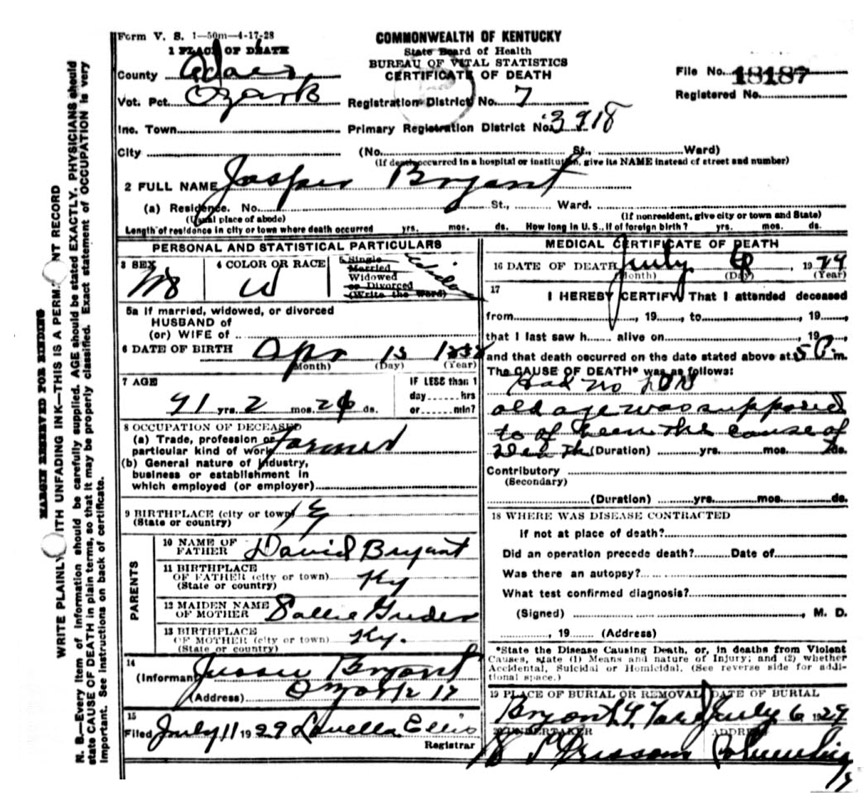 Form V. S. 1—50m—4-17-28
COMMONWEALTH OF KENTUCKY
State Board of Health
BUREAU OF VITAL STATISTICS
CERTIFICATE OF DEATH
1 PLACE OF DEATH
County Adair
File No. 18187
Vot. Pct. Ozark
Registration District No. 7
Registered No.
Inc. Town
Primary Registration District No. 3918
City (No. St., Ward)
(If death occurred in a hospital or institution, give its NAME instead of street and number)
2 FULL NAME Jasper Bryant
(a) Residence. No. St., Ward.
(Usual place of abode) (If nonresident, give city or town and State)
Length of residence in city or town where death occurred yrs. mos. ds. How long in U. S., if of foreign birth? yrs. mos. ds.
PERSONAL AND STATISTICAL PARTICULARS
3 SEX M
4 COLOR OR RACE W
5 Single
Married
Widowed
or Divorced
(Write the word)
5a If married, widowed, or divorced
HUSBAND of
(or) WIFE of
6 DATE OF BIRTH Apr 15
(Month) (Day) (Year)
7 AGE
yrs. 2 mos. ds.
IF LESS than 1
day hrs
or min?
8 OCCUPATION OF DECEASED
(a) Trade, profession or
particular kind of work farmer
(b) General nature of industry,
business or establishment in
which employed (or employer)
9 BIRTHPLACE (city or town) Ky
(State or country)
PARENTS
10 NAME OF
FATHER David Bryant
11 BIRTHPLACE
OF FATHER (city or town) Ky
(State or country)
12 MAIDEN NAME
OF MOTHER Sallie Grider
13 BIRTHPLACE
OF MOTHER (city or town) Ky.
(State or country)
14
(Informant Bryant
(Address) Ozark Ky
15
Filed July 11 1929 Louella Ellis
Registrar
MEDICAL CERTIFICATE OF DEATH
16 DATE OF DEATH July 1929
(Month) (Day) (Year)
17
I HEREBY CERTIFY That I attended deceased
from , 19 , to , 19
that I last saw h alive on , 19
and that death occurred on the date stated above at 5 P m.
The CAUSE OF DEATH* was as follows:
Had no Dr
old age was supposed
to of been the cause of
death (Duration) yrs. mos. ds.
Contributory
(Secondary)
(Duration) yrs. mos. ds.
18 WHERE WAS DISEASE CONTRACTED
If not at place of death?
Did an operation precede death? Date of
Was there an autopsy?
What test confirmed diagnosis?
(Signed) , M. D.
, 19 (Address)
*State the Disease Causing Death, or, in deaths from Violent
Causes, state (1) Means and nature of Injury; and (2) whether
Accidental, Suicidal or Homicidal. (See reverse side for addi-
tional space.)
19 PLACE OF BURIAL OR REMOVAL DATE OF BURIAL
Bryant G. Yard July 6-29
20 UNDERTAKER ADDRESS
Grissom Columbia
Ky
MARGIN RESERVED FOR BINDING
WRITE PLAINLY WITH UNFADING INK—THIS IS A PERMANENT RECORD
N. B.—Every item of information should be carefully supplied. AGE should be stated EXACTLY. PHYSICIANS should
state CAUSE OF DEATH in plain terms, so that it may be properly classified. Exact statement of OCCUPATION is very
important. See instructions on back of certificate.